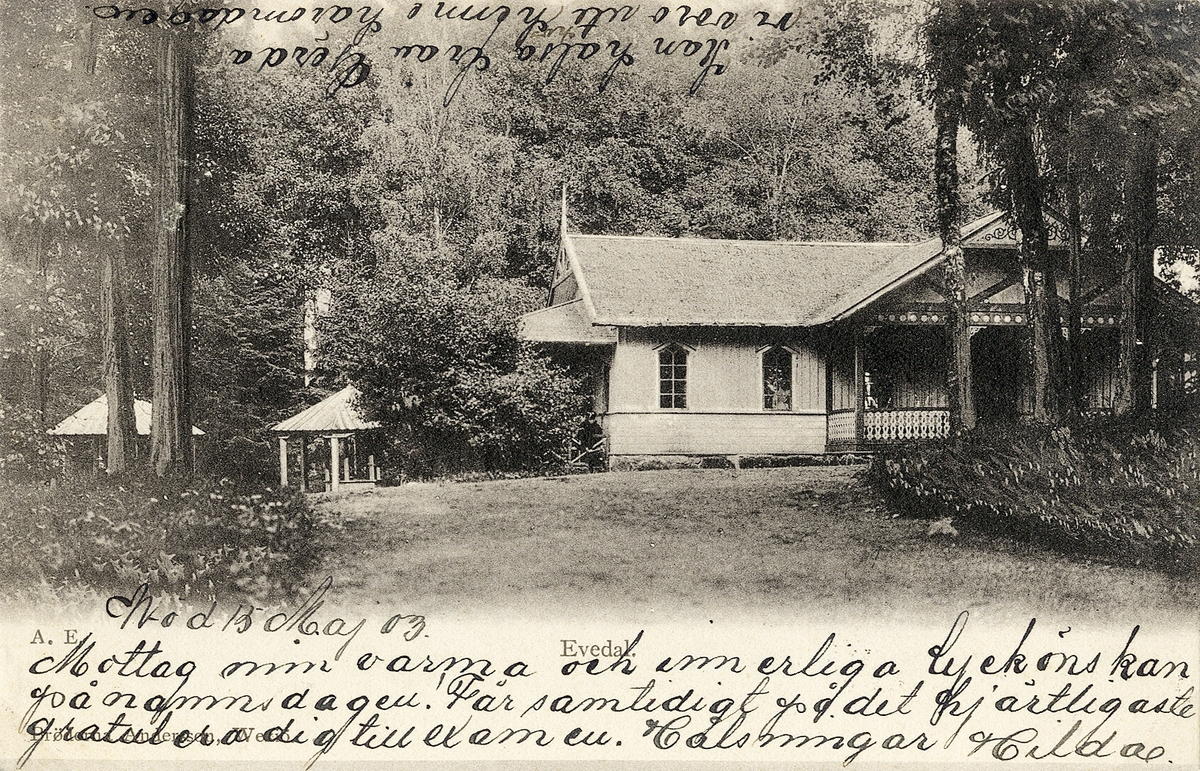 Kan hälsa från Gerda
vi voro uti hemme häromdagen
Wod 15 Maj 03.
A. E.
Evedal.
Mottag min varma och innerliga lyckönskan
på namnsdagen. Får samtidigt på det hjärtligaste
gratulera dig till examen. Hälsningar Hilda.
Bröderna Andersson, Wexiö